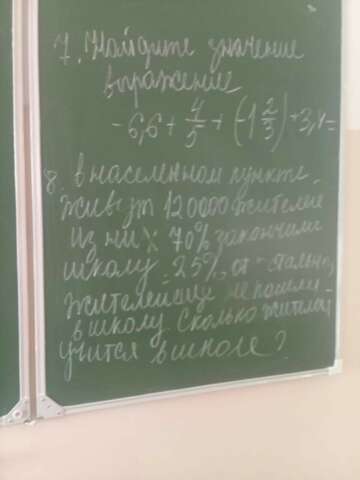 7. Найдите значение
выражение
-6,6 + 4/5 + (-1 2/3) + 3,1 =
8. в населенном пункте
живут 120000 жителей
из них 70% закончили
школу. 25% от
жителей еще не пошли
в школу. Сколько жителей
учится в школе?